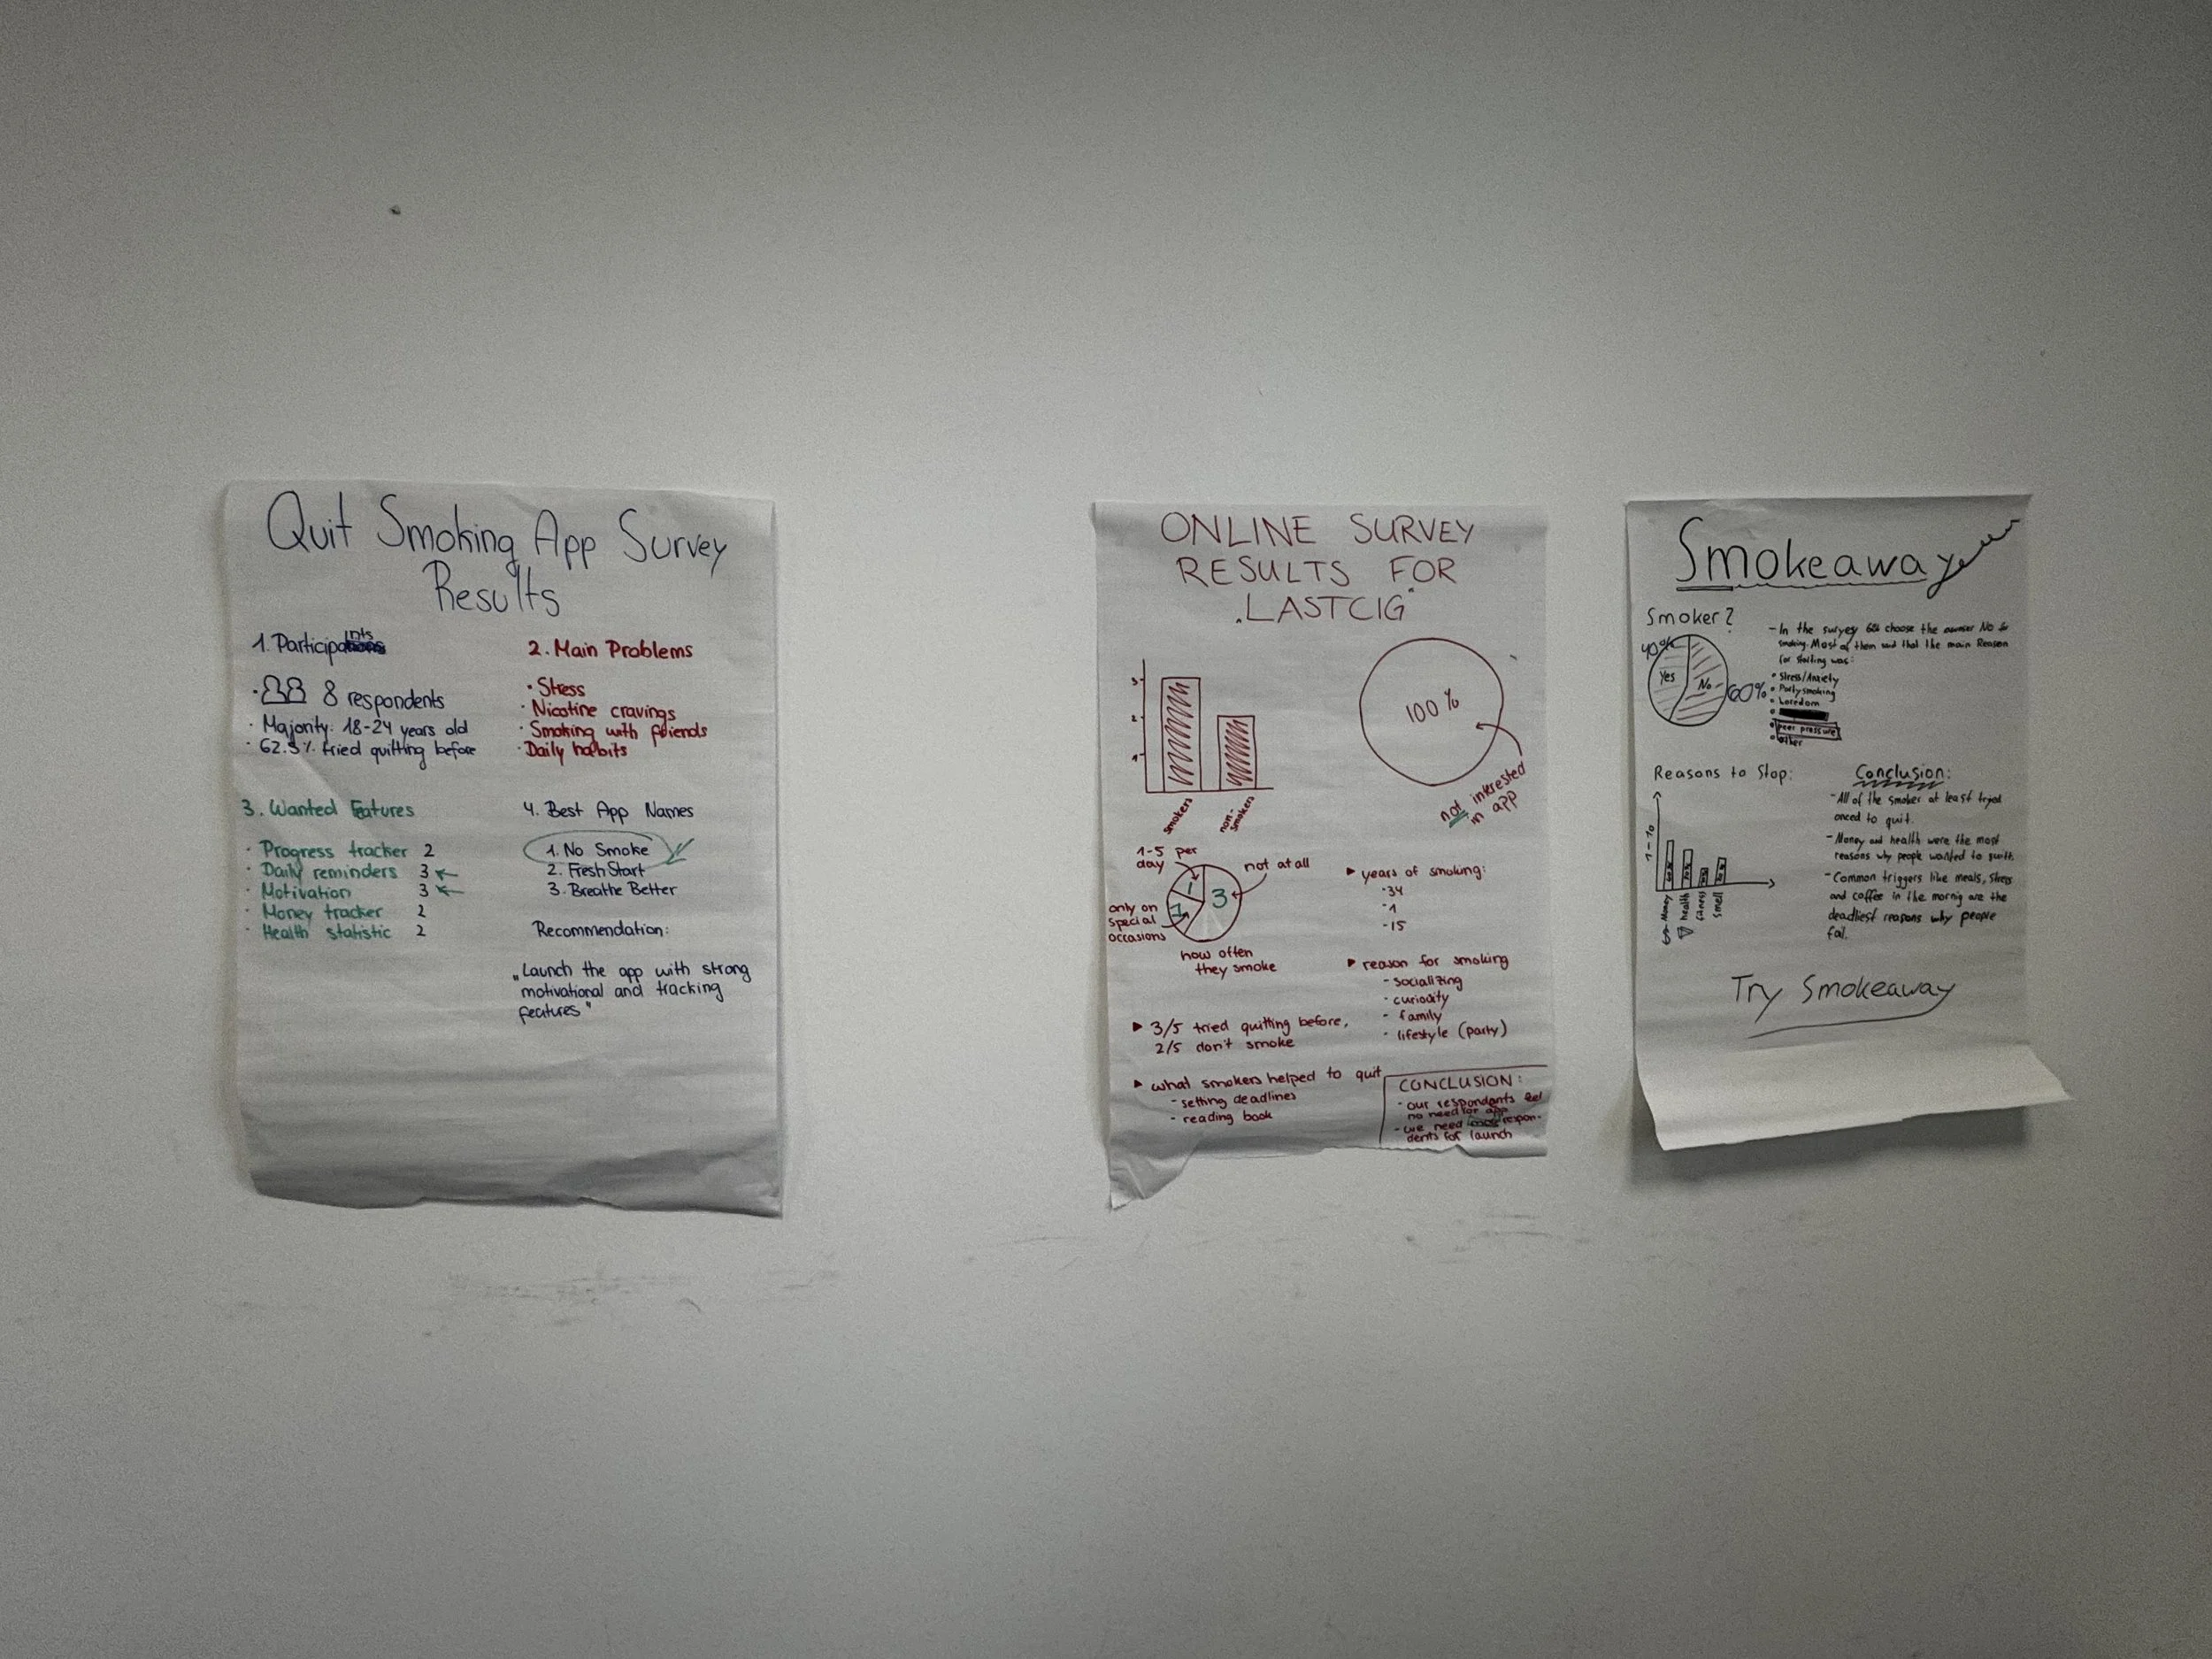 Quit Smoking App Survey
Results
1. Participants
8 respondents
· Majority: 18-24 years old
· 62.5% tried quitting before
2. Main Problems
· Stress
· Nicotine cravings
· Smoking with friends
· Daily habits
3. Wanted Features
· Progress tracker 2
· Daily reminders 3 ←
· Motivation 3 ←
· Money tracker 2
· Health statistic 2
4. Best App Names
1. No Smoke
2. Fresh Start
3. Breathe Better
Recommendation:
„Launch the app with strong
motivational and tracking
features"
ONLINE SURVEY
RESULTS FOR
„LASTCIG"
3
2
1
smokers
non-
smokers
100%
not interested
in app
1-5 per
day
not at all
1
3
1
only on
special
occasions
how often
they smoke
▶ years of smoking:
·34
·1
-15
▶ reason for smoking
- socializing
· curiosity
- family
· lifestyle (party)
▶ 3/5 tried quitting before,
2/5 don't smoke
▶ what smokers helped to quit
- setting deadlines
- reading book
CONCLUSION:
- our respondants feel
no need for app
- we need more respon-
dents for launch
Smokeaway
Smoker?
40%
Yes
No
60%
- In the survey 60% choose the answer No for
smoking. Most of them said that the main Reason
for starting was:
• Stress/Anxiety
• Partysmoking
• boredom
• peer pressure
• other
Reasons to Stop:
1-10
$ Money
health
fitness
smell
Conclusion:
- All of the smoker at least tryed
onced to quit.
- Money and health were the most
reasons why people wanted to quitt.
- Common triggers like meals, stress
and coffee in the mornig are the
deadliest reasons why people
fail.
Try Smokeaway